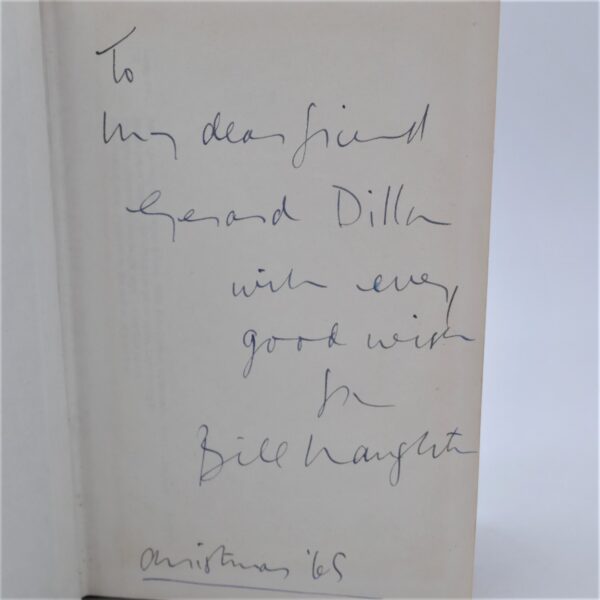 To
my dear friend
Gerard Dillon
with every
good wish
from
Bill Naughton
Christmas '65